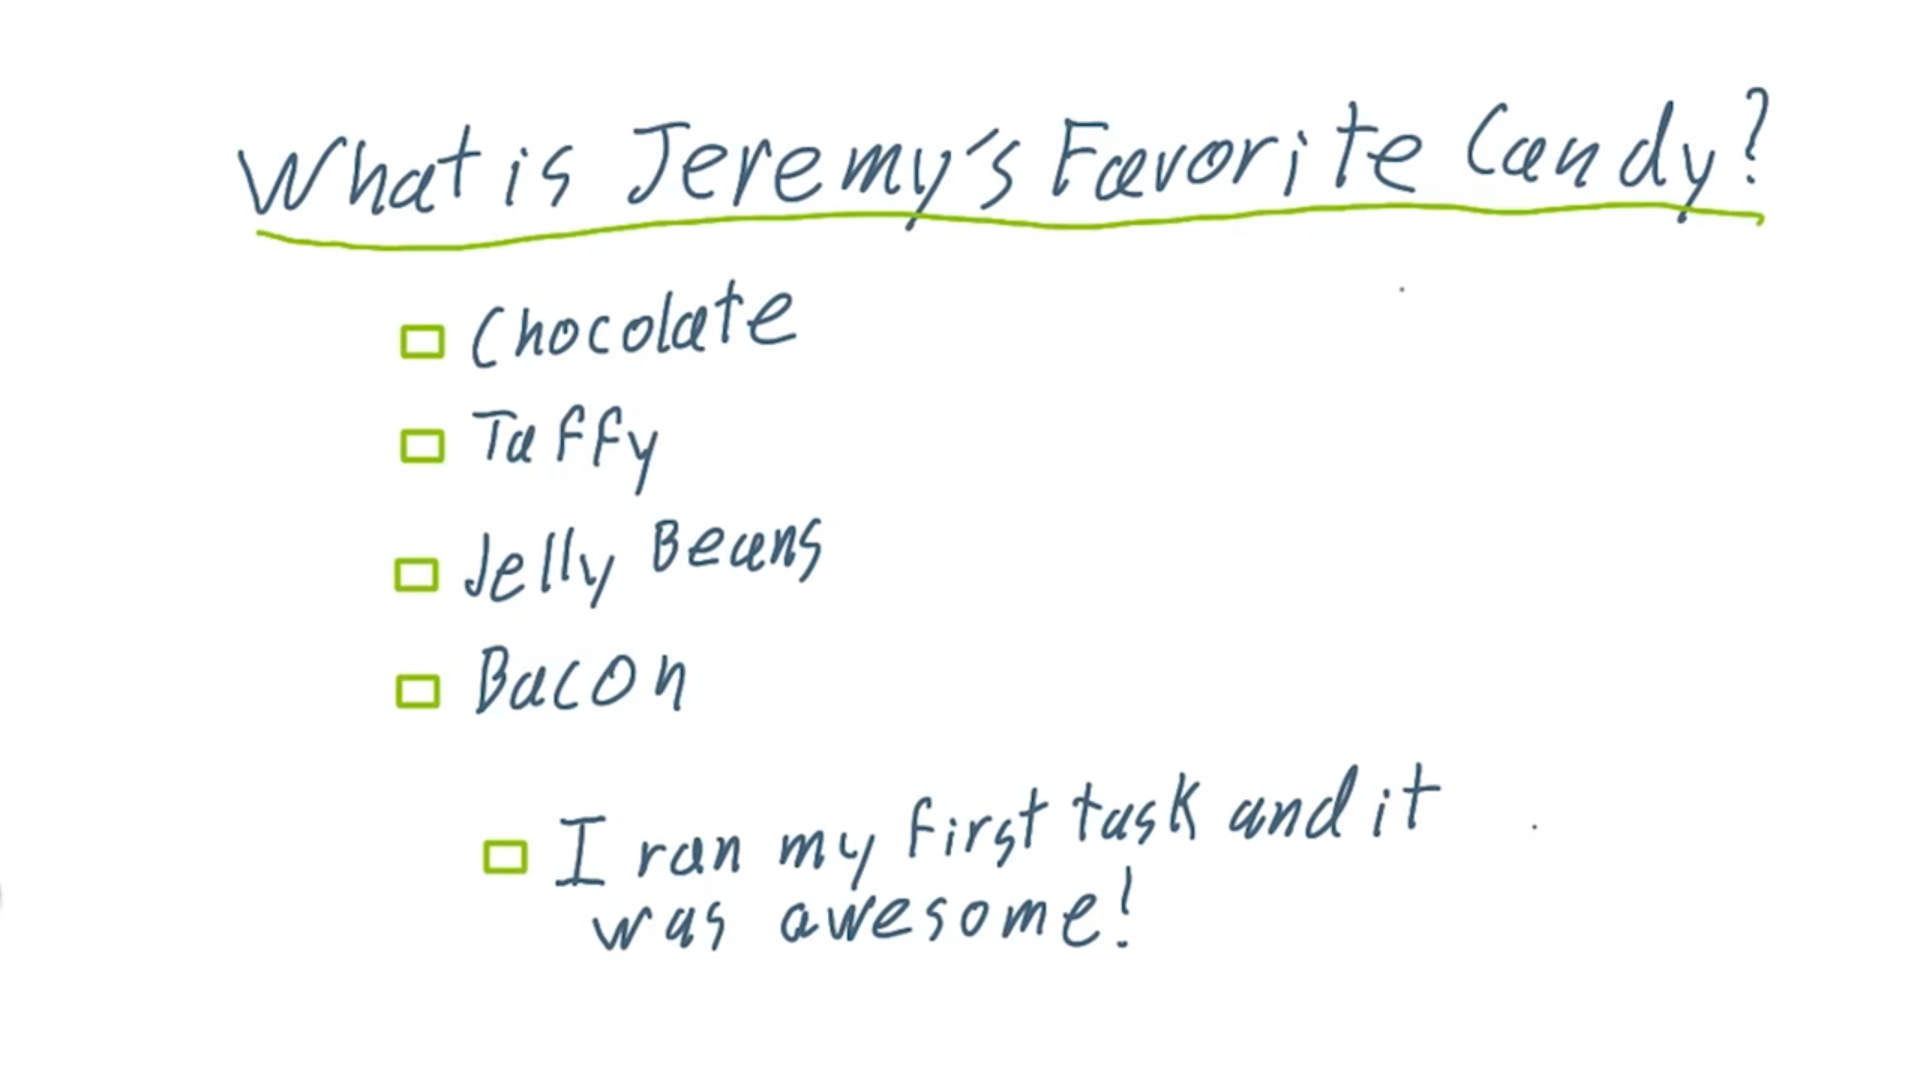 What is Jeremy's Favorite Candy?
Chocolate
Taffy
Jelly Beans
Bacon
I ran my first task and it
was awesome!